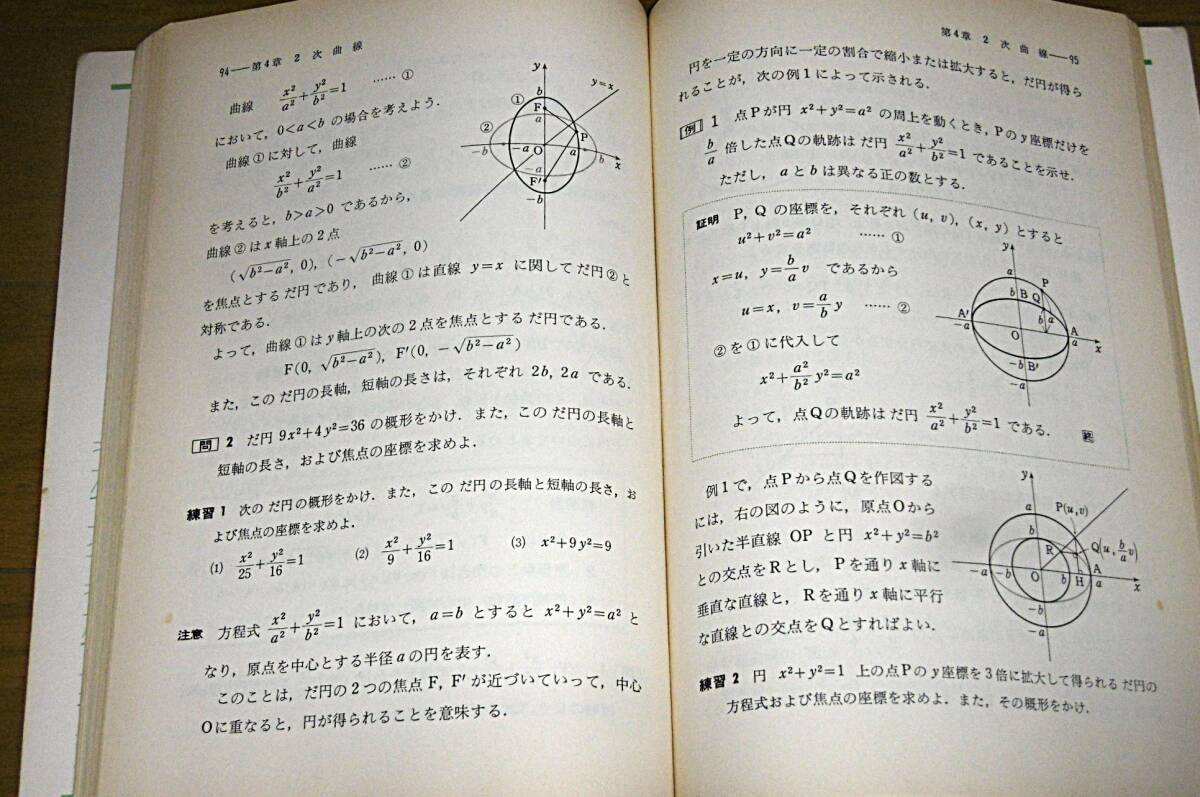 94—第4章 2 次 曲 線
曲線 x²/a²+y²/b²=1 …… ①
において，0<a<b の場合を考えよう．
曲線①に対して，曲線
x²/b²+y²/a²=1 …… ②
を考えると，b>a>0 であるから，
曲線②はx軸上の2点
(√(b²−a²), 0), (−√(b²−a²), 0)
を焦点とするだ円であり，曲線①は直線 y=x に関してだ円②と
対称である．
よって，曲線①はy軸上の次の2点を焦点とするだ円である．
F(0, √(b²−a²)), F′(0, −√(b²−a²))
また，このだ円の長軸，短軸の長さは，それぞれ 2b, 2a である．
y
b
①
F
a
y=x
②
P
−b
−a
O
a
b
x
−a
F′
−b
問 2 だ円 9x²+4y²=36 の概形をかけ．また，このだ円の長軸と
短軸の長さ，および焦点の座標を求めよ．
練習 1 次のだ円の概形をかけ．また，このだ円の長軸と短軸の長さ，お
よび焦点の座標を求めよ．
(1) x²/25+y²/16=1 (2) x²/9+y²/16=1 (3) x²+9y²=9
注意 方程式 x²/a²+y²/b²=1 において，a=b とすると x²+y²=a² と
なり，原点を中心とする半径aの円を表す．
このことは，だ円の2つの焦点 F, F′ が近づいていって，中心
Oに重なると，円が得られることを意味する．
第4章 2 次 曲 線—95
円を一定の方向に一定の割合で縮小または拡大すると，だ円が得ら
れることが，次の例1によって示される．
例 1 点Pが円 x²+y²=a² の周上を動くとき，Pのy座標だけを
b/a 倍した点Qの軌跡はだ円 x²/a²+y²/b²=1 であることを示せ．
ただし，aとbは異なる正の数とする．
証明 P, Q の座標を，それぞれ (u, v), (x, y) とすると
u²+v²=a² …… ①
x=u, y=b/a v であるから
u=x, v=a/b y …… ②
②を①に代入して
x²+a²/b² y²=a²
よって，点Qの軌跡はだ円 x²/a²+y²/b²=1 である． 終
y
a
P
b
B
Q
A′
−a
b
a
A
O
a
x
−b
B′
−a
例1で，点Pから点Qを作図する
には，右の図のように，原点Oから
引いた半直線 OP と円 x²+y²=b²
との交点をRとし，Pを通りx軸に
垂直な直線と，Rを通りx軸に平行
な直線との交点をQとすればよい．
y
a
P(u, v)
b
R
Q(u, b/a v)
−a
−b
O
b
H
A
a
x
−b
−a
練習 2 円 x²+y²=1 上の点Pのy座標を3倍に拡大して得られるだ円の
方程式および焦点の座標を求めよ．また，その概形をかけ．